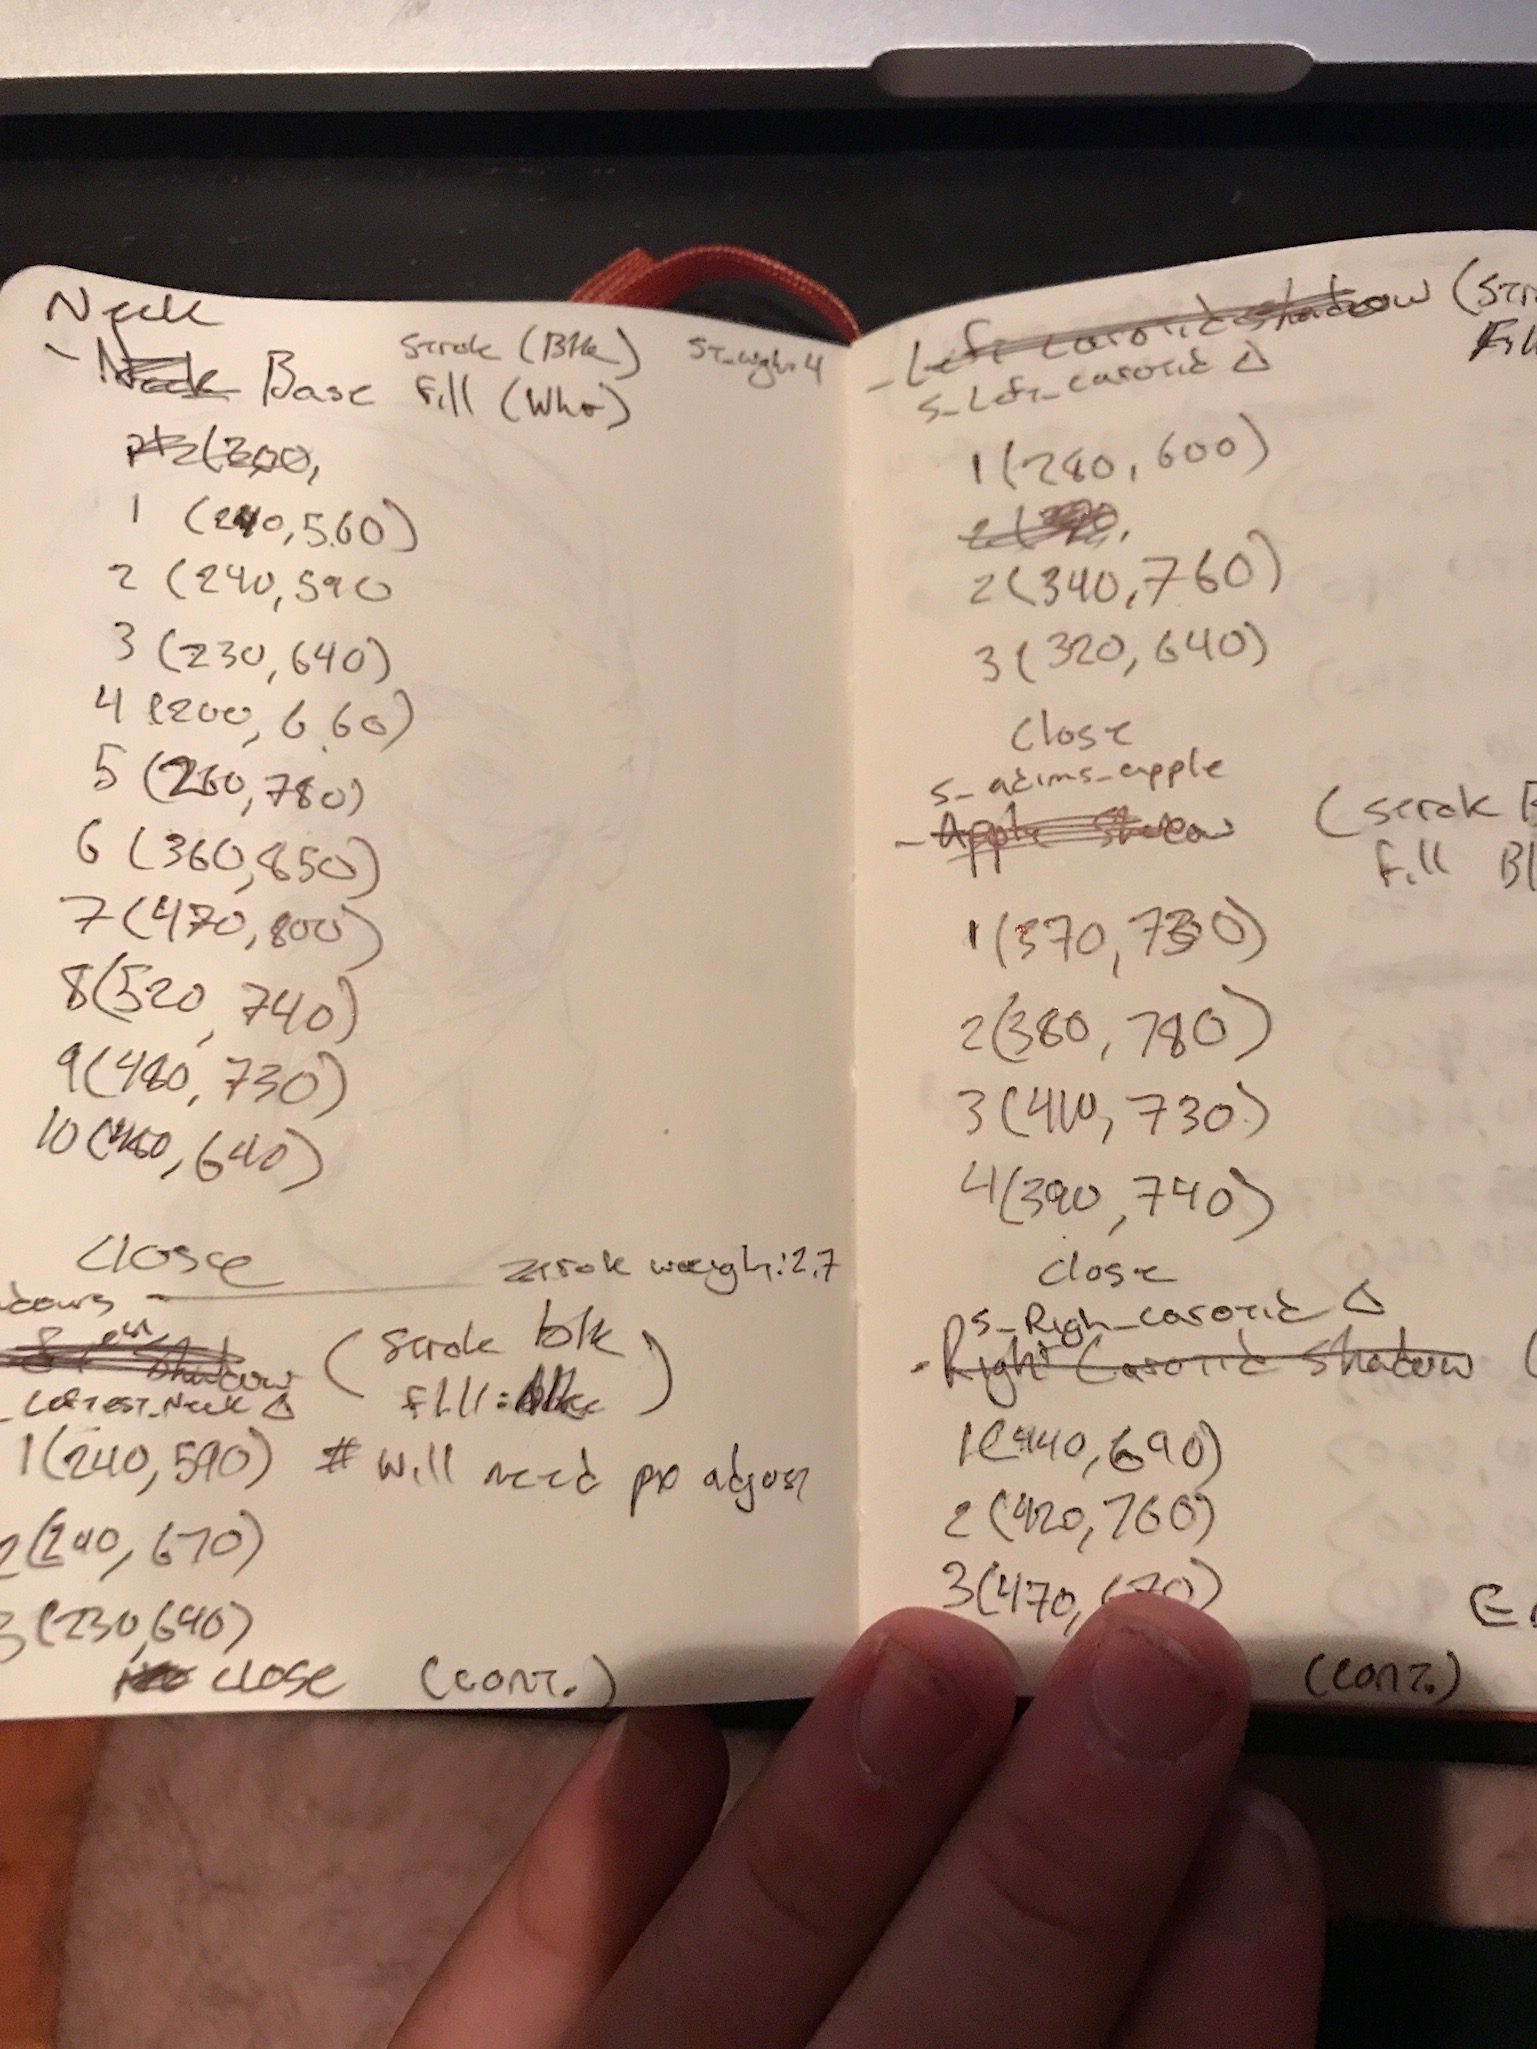 Neck
- Base Strok (Blk) St_wgh: 4
Fill (Wht)
1 (240, 560)
2 (240, 590
3 (230, 640)
4 (200, 660)
5 (260, 780)
6 (360, 850)
7 (470, 800)
8 (520, 740)
9 (480, 730)
10 (460, 640)
Close
Strok weigh: 2.7
(Strok blk
fill: blk)
_Leftest_Neck Δ
1 (240, 590) # Will need px adjust
2 (240, 670)
3 (230, 640)
close (cont.)
- Left carotid shadow (Str
Fill
S_Left_carotid Δ
1 (280, 600)
2 (340, 760)
3 (320, 640)
Close
s_adims_apple
- Apple Shadow (strok B
fill Bl
1 (370, 730)
2 (380, 780)
3 (410, 730)
4 (390, 740)
close
S_Righ_carotid Δ
- Right Carotid Shadow (
1 (440, 690)
2 (420, 760)
3 (470, 670)
(cont.)